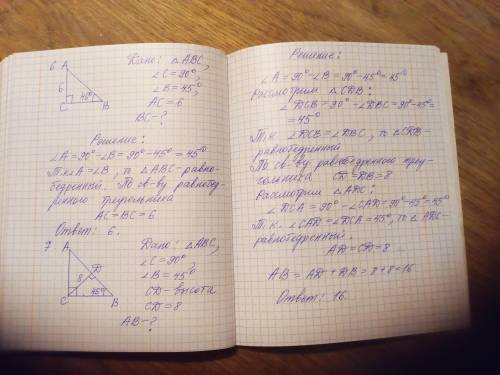 6. A
6
C
45°
B
Дано: △ABC,
∠C=90°,
∠B=45°,
AC=6
BC-?
Решение:
∠A=90°-∠B=90°-45°=45°
Т.к ∠A=∠B, то △ABC-равно-
бедренный. По св-ву равнобед-
ренного треугольника
AC=BC=6
Ответ: 6.
7
A
D
8
45°
C
B
Дано: △ABC,
∠C=90°,
∠B=45°
CD-высота
CD=8
AB-?
Решение:
∠A=90°-∠B=90°-45°=45°
Рассмотрим △CDB:
∠DCB=90°-∠DBC=90°-45°=
=45°
Т.к. ∠DCB=∠DBC, то △CDB-
равнобедренный
По св-ву равнобедренного треу-
гольника CD=DB=8
Рассмотрим △ADC:
∠DCA=90°-∠CAD=90°-45°=45°
Т.к. ∠CAD=∠DCA=45°, то △ADC-
равнобедренный.
AD=CD=8
AB=AD+DB=8+8=16
Ответ: 16.